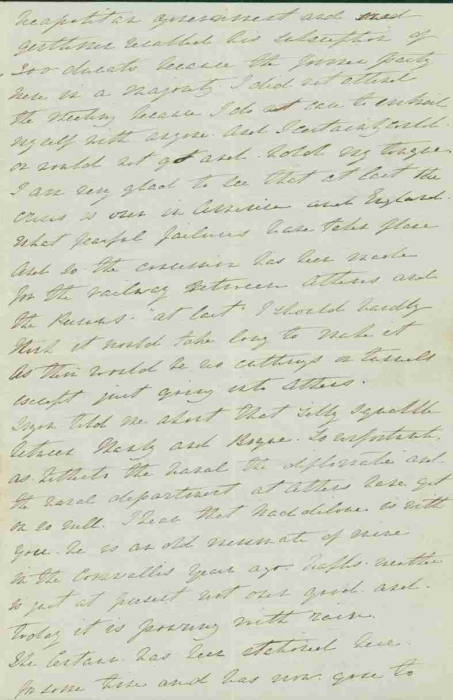 Neapolitan government and
gentlemen recalled his subscription of
300 ducats because the former party
were in a majority I did not attend
the meeting because I do not care to embroil
myself with anyone. And I certainly could
or would not go and hold my tongue
I am very glad to see that at last the
crisis is over in America and England.
What fearful failures have taken place
And so the concession has been made
for the railway between Athens and
the Piraeus. "at last" I should hardly
think it would take long to make it
As there would be no cuttings or tunnels
except just going into Athens.
told me about that silly squabble
between and So unfortunate
as hitherto the naval the diplomatic and
the naval department at Athens have got
on so well. I hear that is with
you. he is an old messmate of mine
in the Cornwallis years ago. Naples weather
is just at present not over good and
today it is pouring with rain.
The has been stationed here
for some time and has now gone to